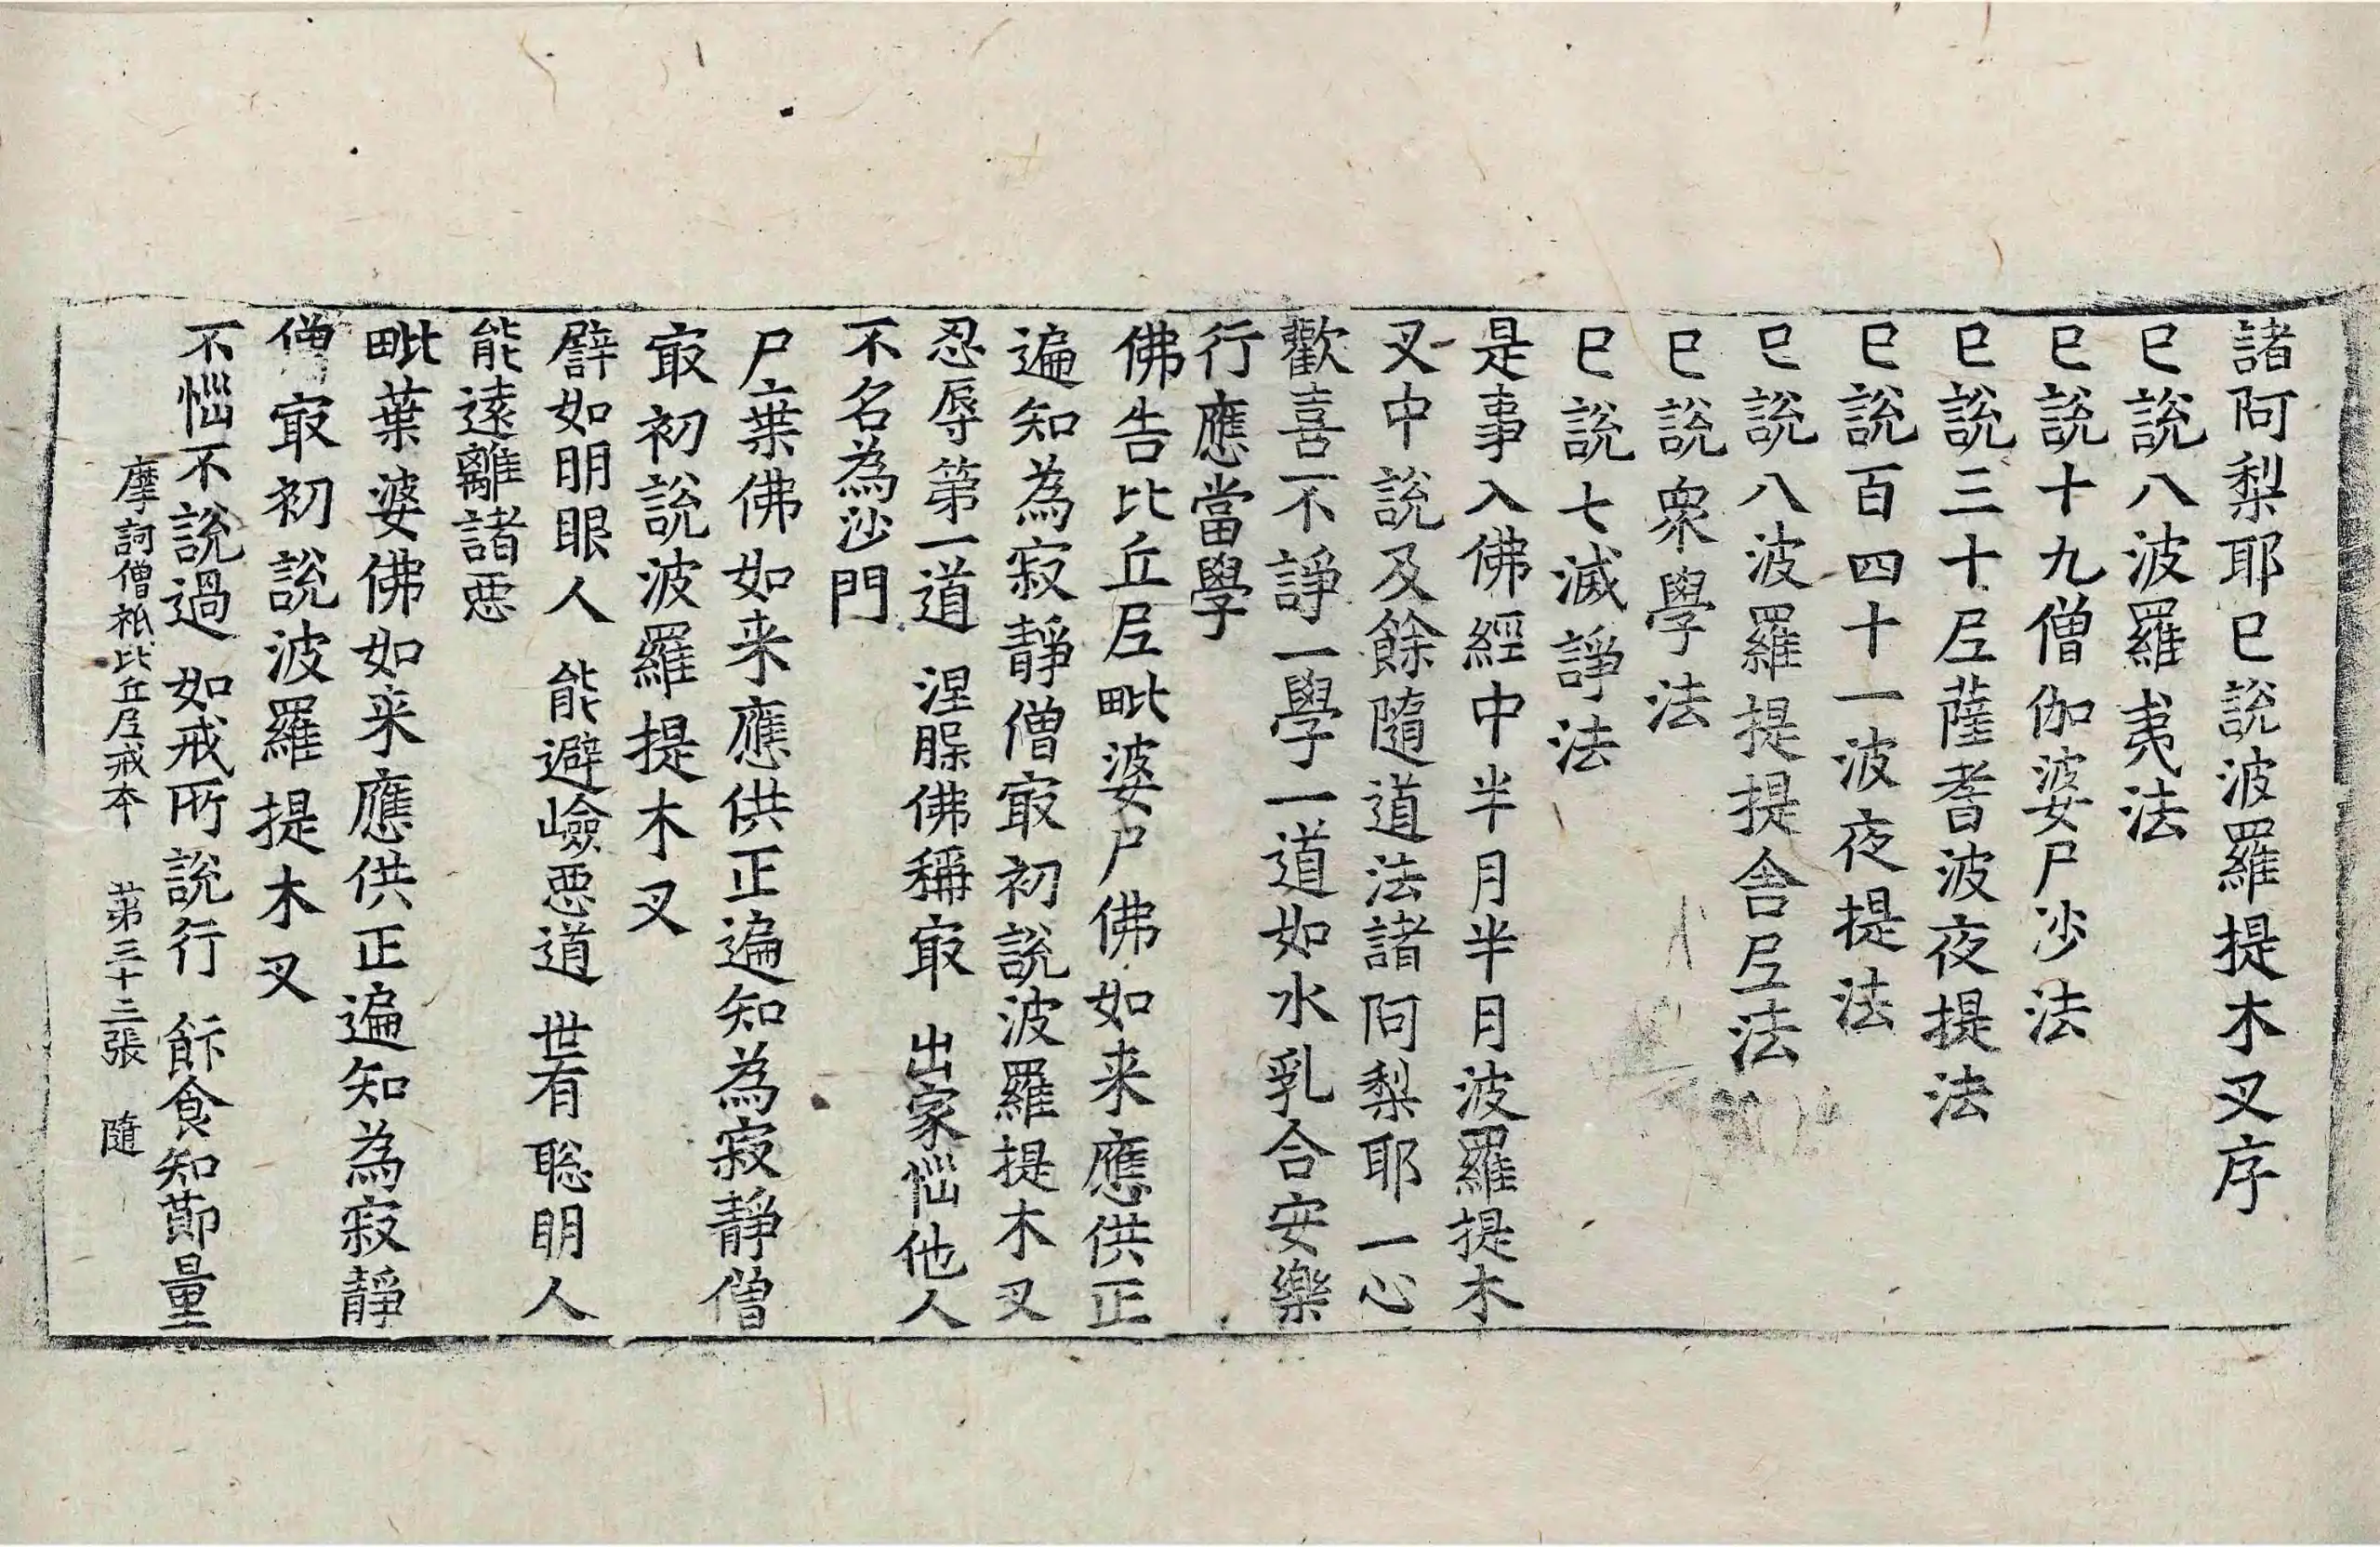 諸阿梨耶已說波羅提木叉序
已說八波羅夷法
已說十九僧伽婆尸沙法
已說三十尼薩耆波夜提法
已說百四十一波夜提法
已說八波羅提提舍尼法
已說衆學法
已說七滅諍法
是事入佛經中半月半月波羅提木
叉中說及餘隨道法諸阿梨耶一心
歡喜不諍一學一道如水乳合安樂
行應當學
佛告比丘尼毗婆尸佛如来應供正
遍知為寂靜僧㝡初說波羅提木叉
忍辱第一道 涅槃佛稱㝡 出家惱他人
不名為沙門
尸棄佛如来應供正遍知為寂靜僧
㝡初說波羅提木叉
譬如明眼人 能避嶮惡道 世有聡明人
能遠離諸惡
毗葉婆佛如来應供正遍知為寂靜
僧㝡初說波羅提木叉
不惱不說過 如戒所說行 飯食知節量
摩訶僧祇比丘尼戒本 第三十二張 隨